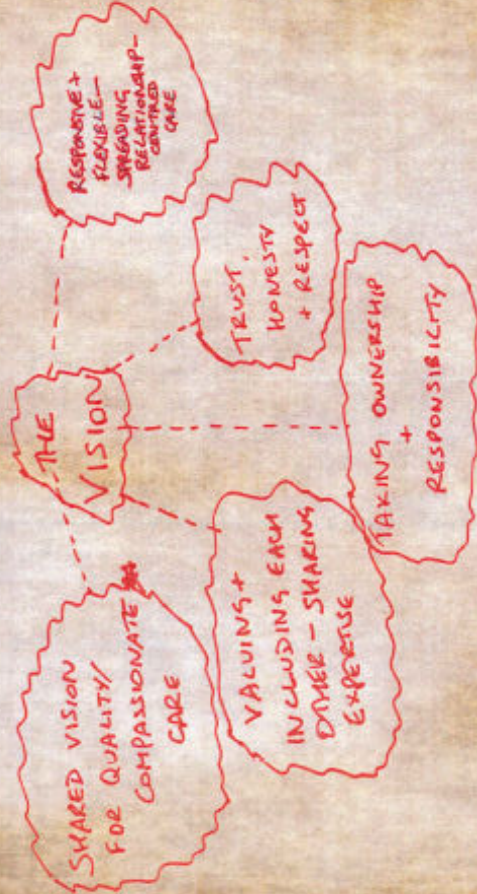 THE
VISION
SHARED VISION
FOR QUALITY/
COMPASSIONATE
CARE
VALUING +
INCLUDING EACH
OTHER - SHARING
EXPERTISE
TAKING OWNERSHIP
+
RESPONSIBILITY
TRUST,
HONESTY
+ RESPECT
RESPONSIVE +
FLEXIBLE -
SPREADING
RELATIONSHIP-
CENTRED
CARE